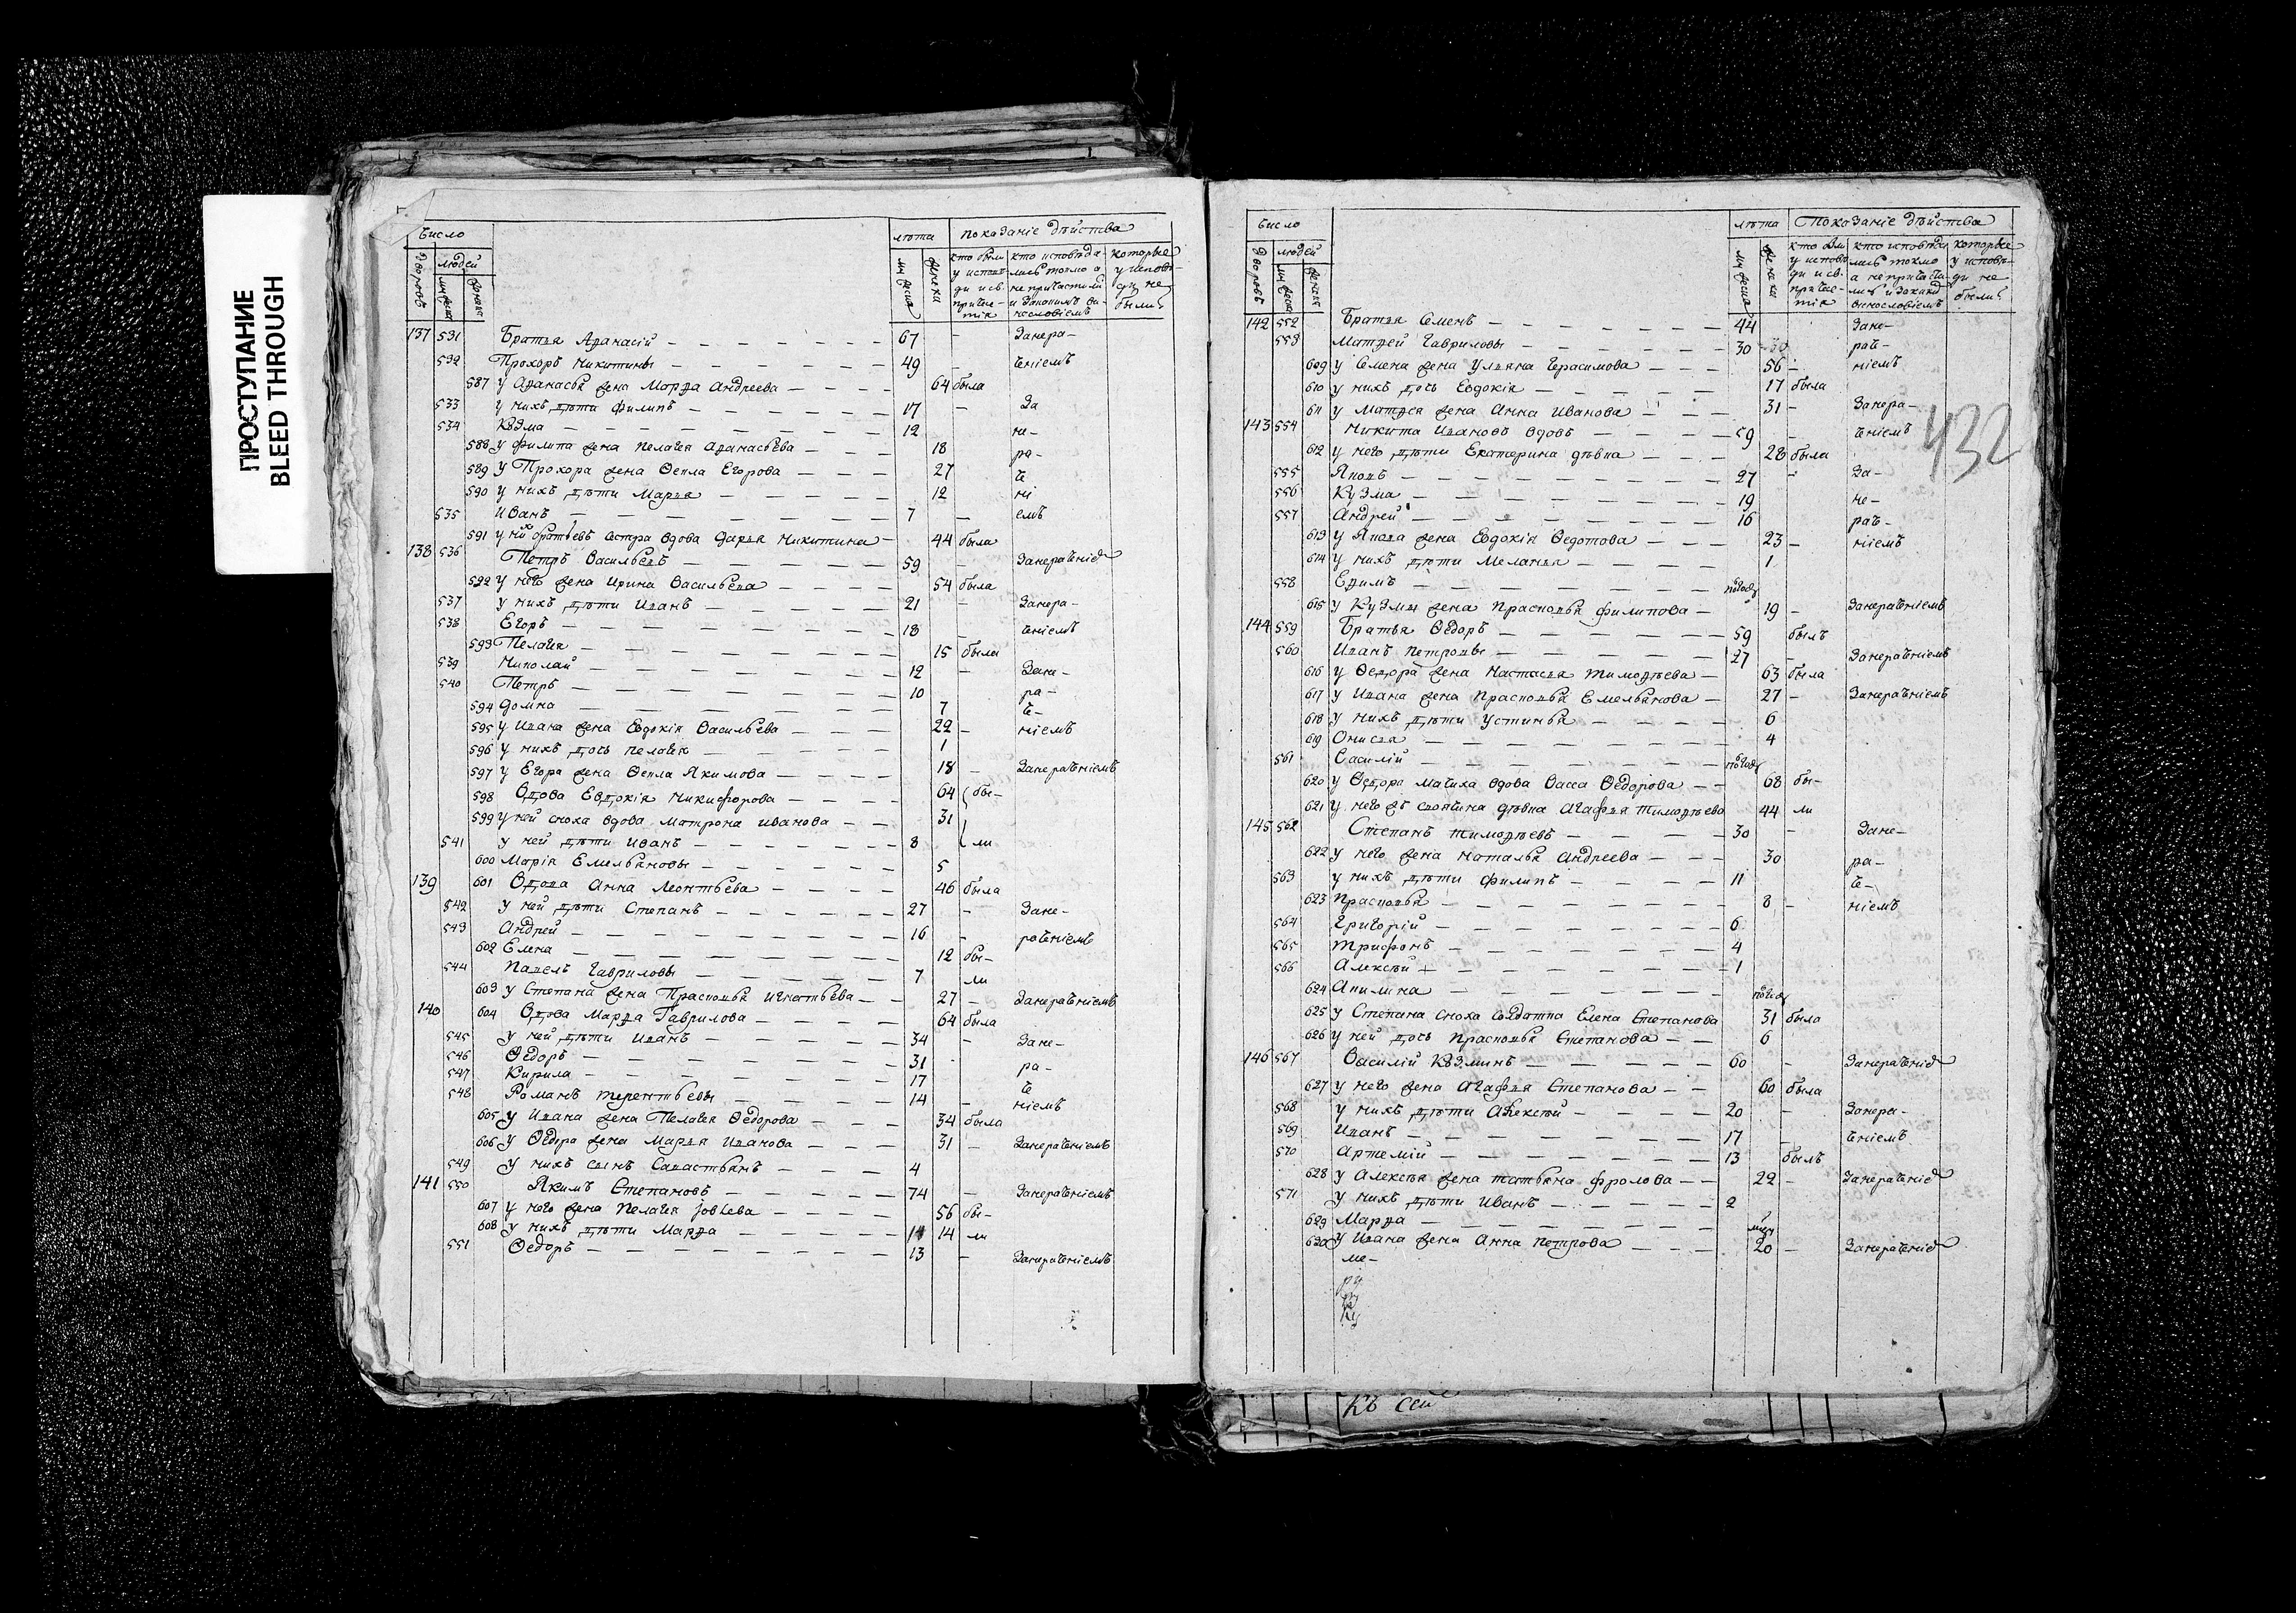 ПРОСТУПАНИЕ
BLEED THROUGH
Число лѣта показаніе дѣйства
Дворовъ людей мужеска женска кто были у исповѣди и св. причастія кто исповѣдались токмо а не причастились и закакимъ винословіемъ которые у исповѣди не были
137 531 Братья Афанасій 67 - Занера-
532 Прохоръ Никитины 49 - ченіемъ
587 у Афанасья жена Марфа Андреева 64 была
533 у нихъ дѣти Филипъ 17 - За
534 Козма 12 не-
588 у Филипа жена Пелагея Афанасьева 18 ра-
589 у Прохора жена Ѳекла Егорова 27 че
590 у нихъ дѣти Марья 12 ні
535 Иванъ 7 - емъ
591 у нихъ братьевъ сестра вдова Дарья Никитина 44 была
138 536 Петръ Васильевъ 59 - Занераченіе
592 у него жена Ирина Васильева 54 была
537 у нихъ дѣти Иванъ 21 - Занера-
538 Егоръ 18 - ченіемъ
593 Пелагея 15 была
539 Николай 12 - Зане-
540 Петръ 10 - ра-
594 Домна 7 че-
595 у Ивана жена Евдокія Васильева 22 - ніемъ
596 у нихъ дочь Пелагея 1
597 у Егора жена Ѳекла Якимова 18 - Занераченіемъ
598 Вдова Евдокія Никифорова 64 бы-
599 у ней сноха вдова Матрона Иванова 31
541 у ней дѣти Иванъ 8 ли
600 Марія Емельяновы 5
139 601 Вдова Анна Леонтьева 46 была
542 у ней дѣти Степанъ 27 - Зане-
543 Андрей 16 - раченіемъ
602 Елена 12 бы-
544 Павелъ Гавриловы 7 ли
603 у Степана жена Прасковья Игнатьева 27 - Занераченіемъ
140 604 Вдова Марфа Гаврилова 64 была
545 у ней дѣти Иванъ 34 - Зане-
546 Ѳедоръ 31 - ра-
547 Кирила 17 че
548 Романъ Терентьевы 14 - ніемъ
605 у Ивана жена Пелагея Ѳедорова 34 была
606 у Ѳедора жена Марья Иванова 31 - Занераченіемъ
549 у нихъ сынъ Савастьянъ 4
141 550 Якимъ Степановъ 74 - Занераченіемъ
607 у него жена Пелагея Іовлева 56 бы-
608 у нихъ дѣти Марфа 14 14 ли
551 Ѳедоръ 13 - Занераченіемъ
Число лѣта Показаніе дѣйства
Дворовъ людей мужеска женска кто были у исповѣди и св. причастія кто исповѣдались токмо а не причастились и закакимъ винословіемъ которые у исповѣди не были
142 552 Братья Семенъ 44 Зане-
553 Матфей Гавриловы 30 30 рач-
609 у Семена жена Ульяна Герасимова 56 - ніемъ
610 у нихъ дочь Евдокія 17 была
611 у Матфея жена Анна Иванова 31 - Занера-
143 554 Никита Ивановъ вдовъ 59 - ченіемъ
432
612 у него дѣти Екатерина дѣвка 28 была
555 Яковъ 27 - За-
556 Кузма 19 не-
557 Андрей 16 рач-
613 у Якова жена Евдокія Ѳедотова 23 - ніемъ
614 у нихъ дѣти Меланья 1
558 Ефимъ полгоду
615 у Кузмы жена Прасковья Филипова 19 - Занераченіемъ
144 559 Братья Ѳедоръ 59 былъ
560 Иванъ Петровы 27 - Занераченіемъ
616 у Ѳедора жена Настасья Тимофѣева 63 была
617 у Ивана жена Прасковья Емельянова 27 - Занераченіемъ
618 у нихъ дѣти Устинья 6
619 Онисья 4
561 Василій полгоду
620 у Ѳедора мачиха вдова Васса Ѳедорова 68 бы-
621 у него жъ своячина дѣвка Агафья Тимофѣева 44 ли
145 562 Степанъ Тимофѣевъ 30 - Зане-
622 у него жена Наталья Андреева 30 ра-
563 у нихъ дѣти Филипъ 11 че-
623 Прасковья 8 - ніемъ
564 Григорій 6
565 Трифонъ 4
566 Алексѣй 1
624 Акилина полгоду
625 у Степана сноха солдатка Елена Степанова 31 была
626 у ней дочь Прасковья Степанова 6
146 567 Василій Козминъ 60 - Занераченіе
627 у него жена Агафья Степанова 60 была
568 у нихъ дѣти Алексѣй 20 - Занера-
569 Иванъ 17 - ченіемъ
570 Артемій 13 былъ
628 у Алексѣя жена Татьяна Фролова 22 - Занераченіе
571 у нихъ дѣти Иванъ 2
629 Марфа
630 у Ивана жена Анна Петрова 20 - Занераченіе
ме-
ру
Къ сей